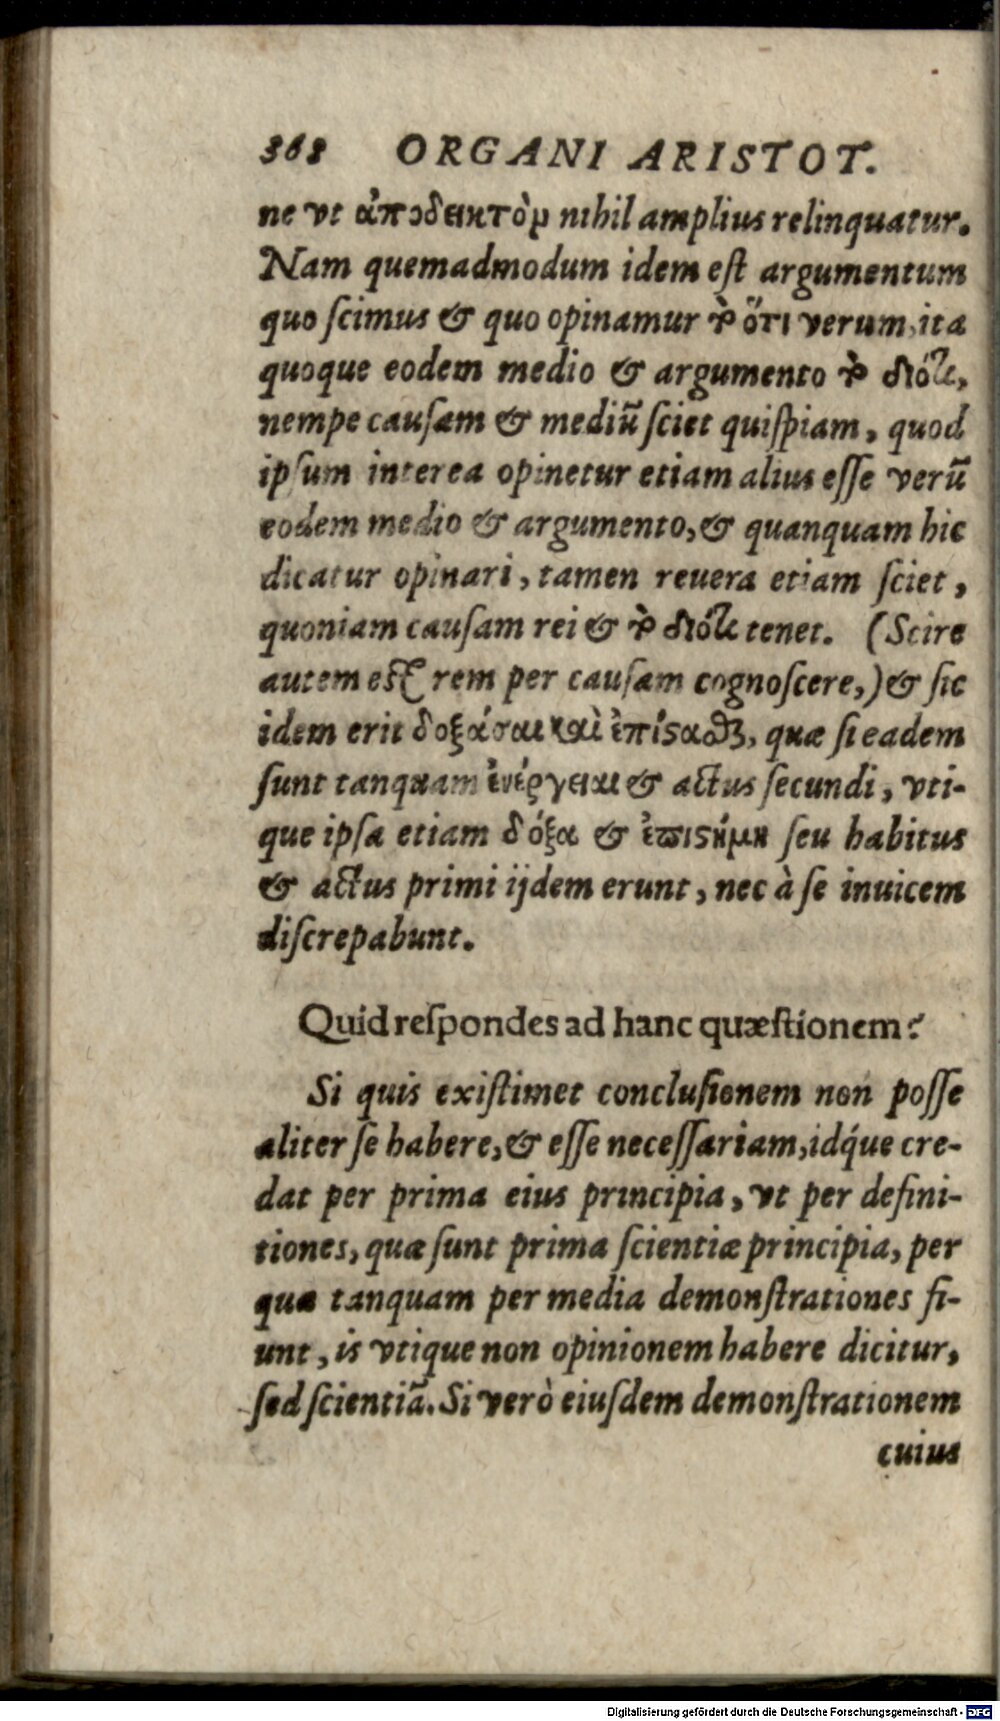 368 ORGANI ARISTOT.
ne vt ἀποδεικτὸν nihil amplius relinquatur.
Nam quemadmodum idem eſt argumentum
quo ſcimus & quo opinamur τὸ ὅτι verum, ita
quoque eodem medio & argumento τὸ διότι,
nempe cauſam & mediū ſciet quiſpiam, quod
ipſum interea opinetur etiam alius eſſe verū
eodem medio & argumento, & quanquam hic
dicatur opinari, tamen reuera etiam ſciet,
quoniam cauſam rei & τὸ διότι tenet. (Scire
autem eſt rem per cauſam cognoſcere,) & ſic
idem erit δοξάσαι καὶ ἐπίςασθαι, quæ ſi eadem
ſunt tanquam ἐνέργειαι & actus ſecundi, vti-
que ipſa etiam δόξα & ἐπιςήμη ſeu habitus
& actus primi ijdem erunt, nec à ſe inuicem
diſcrepabunt.
Quid reſpondes ad hanc quæſtionem?
Si quis exiſtimet concluſionem non poſſe
aliter ſe habere, & eſſe neceſſariam, idq́ue cre-
dat per prima eius principia, vt per defini-
tiones, quæ ſunt prima ſcientiæ principia, per
quæ tanquam per media demonſtrationes fi-
unt, is vtique non opinionem habere dicitur,
ſed ſcientiā. Si verò eiuſdem demonſtrationem
cuius
Digitalisierung gefördert durch die Deutsche Forschungsgemeinschaft - DFG